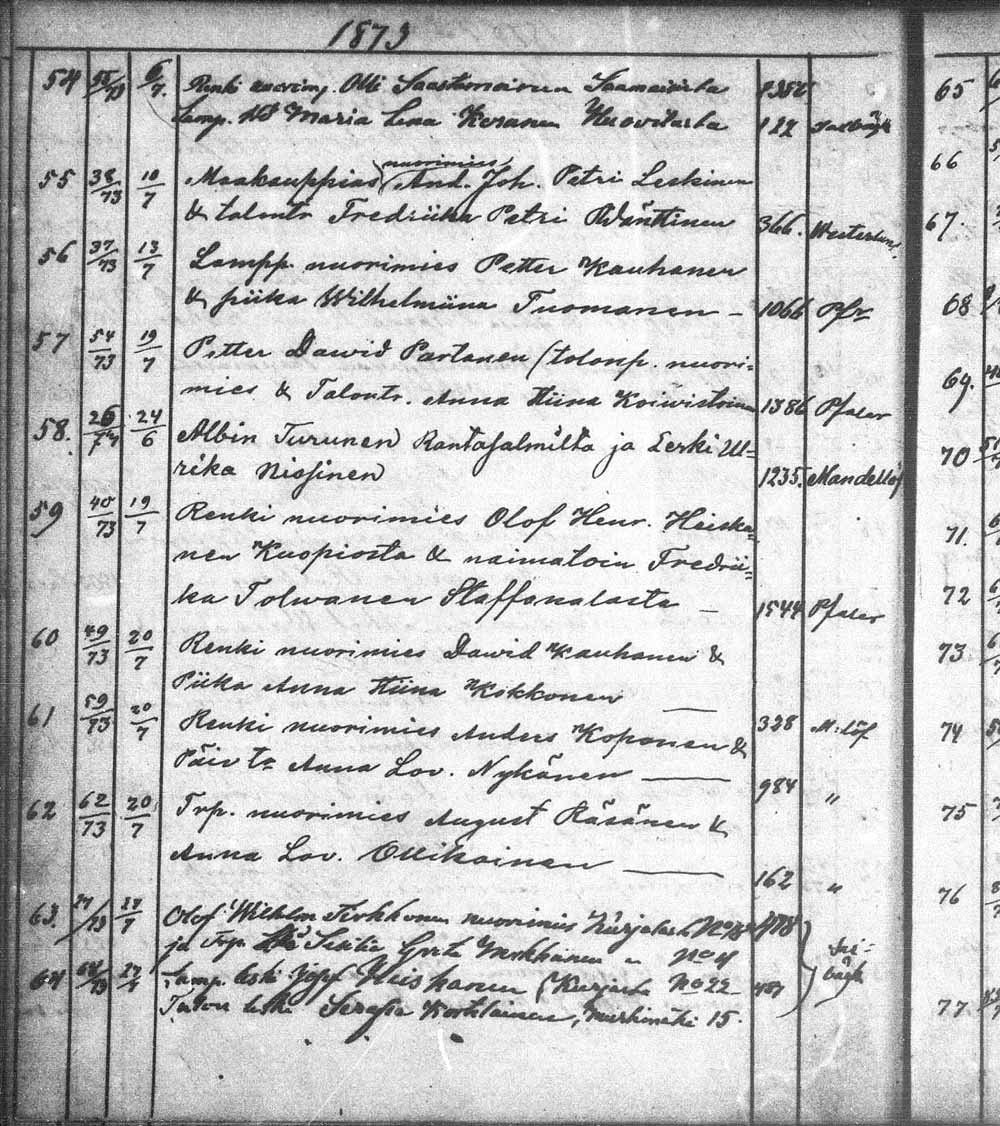 1873
54 55/73 6/7. Renki nuorimj. Olli Saastamoinen Saamaisista 1352
Lamp. Maria Lena Koranen Huovilasta 127
55 38/73 10/7 Maakauppias (nuorimies) And. Joh. Petri Leskinen
& talontr Fredriika Petri Wänttinen 366. Westerlund
56 37/73 13/7 Lampp. nuorimies Petter Kauhanen
& piika Wilhelmiina Tuomanen – 1066 Pflr
57 54/73 19/7 Petter Dawid Partanen (talonp. nuori=
mies & Talontr. Anna Stiina Koiwistoinen 1386 Pfaler
58. 26/74 24/6 Albin Turunen Rantasalmilta ja Leski Ul=
rika Nissinen 1235. Mandellöf
59 40/73 19/7 Renki nuorimies Olof Henr. Heiska=
nen Kuopiosta & naimatoin Fredrii=
ka Tolwanen Staffanalasta – 1544 Pfaler
60 49/73 20/7 Renki nuorimies Dawid Kauhanen &
Piika Anna Stiina Kokkonen — 328 M:löf
61 59/73 20/7 Renki nuorimies Anders Koponen &
Päiv tr Anna Lov. Nykänen — 984 „
62 62/73 20/7 Trp. nuorimies August Räsänen &
Anna Lov. Ollikainen — 162 „
63. 27/7 Olof Wilhelm Tirkkonen nuorimies
ja Greta
64 27/7 Lamp. leski Josef Heiskanen (Kurjala No 22
Talon leski Serafia Korhlainen, 15.
65
66
67.
68
69.
70
71.
72
73
74
75
76
77.